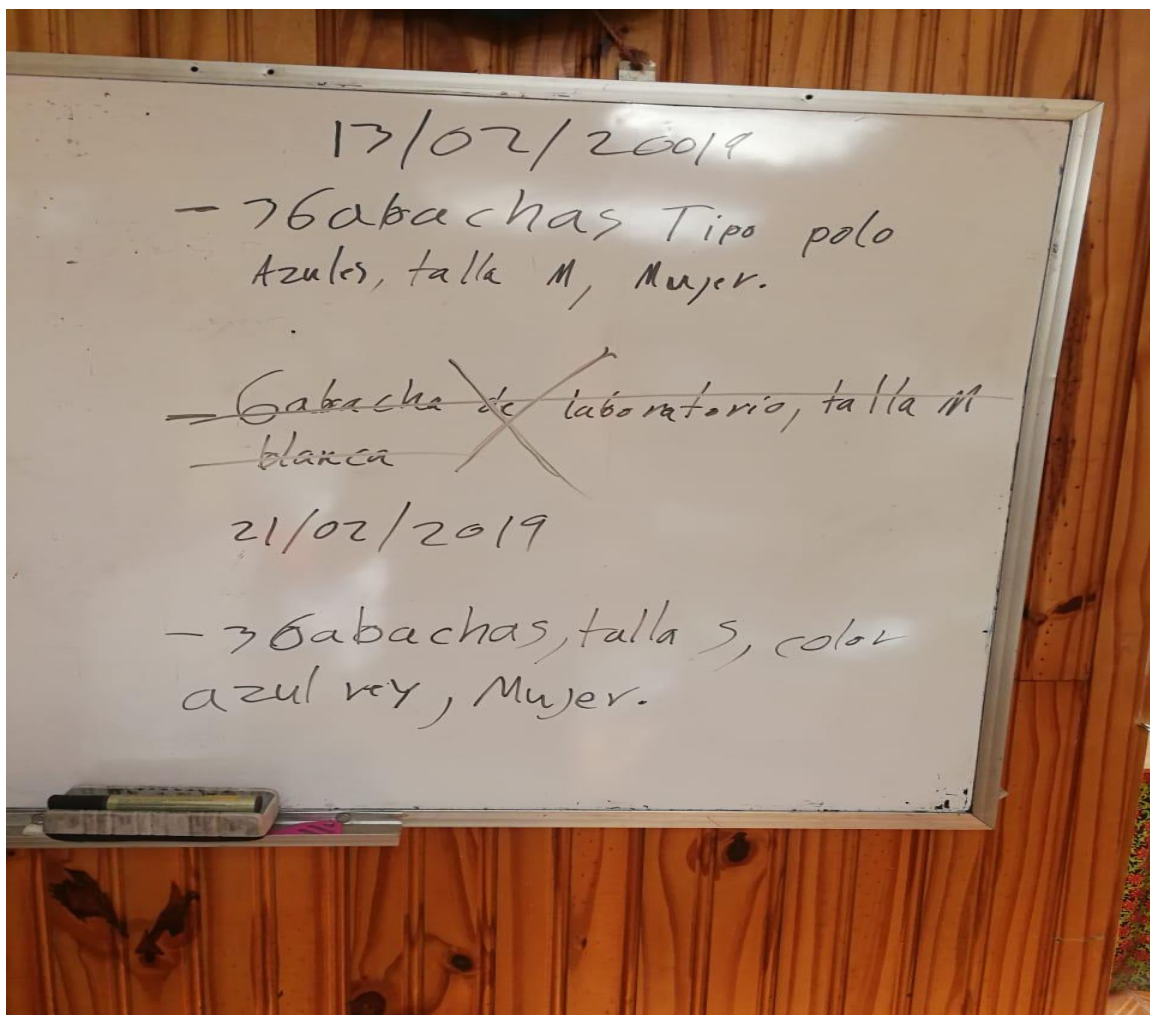 13/02/20019
- 3 Gabachas Tipo polo
Azules, talla M, Mujer.
- Gabacha de laboratorio, talla M
blanca
21/02/2019
- 3 Gabachas, talla S, color
azul rey, Mujer.